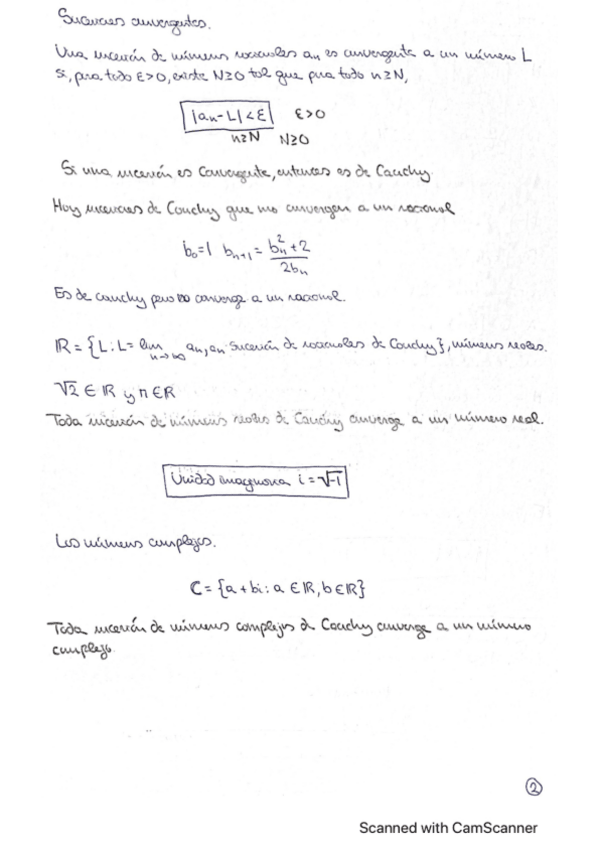 Sucesiones convergentes.
Una sucesión de números racionales an es convergente a un número L
si, para todo ε>0, existe N≥0 tal que para todo n≥N,
|an-L|<ε ε>0
n≥N N≥0
Si una sucesión es convergente, entonces es de Cauchy.
Hay sucesiones de Cauchy que no convergen a un racional
b₀=1 bₙ₊₁= (bₙ²+2)/(2bₙ)
Es de cauchy pero no converge a un racional.
ℝ={L: L= lim n→∞ an, an sucesión de racionales de Cauchy}, números reales.
√2 ∈ ℝ y π ∈ ℝ
Toda sucesión de números reales de Cauchy converge a un número real.
Unidad imaginaria i=√-1
Los números complejos.
ℂ={a+bi: a ∈ ℝ, b ∈ ℝ}
Toda sucesión de números complejos de Cauchy converge a un número
complejo.
2
Scanned with CamScanner